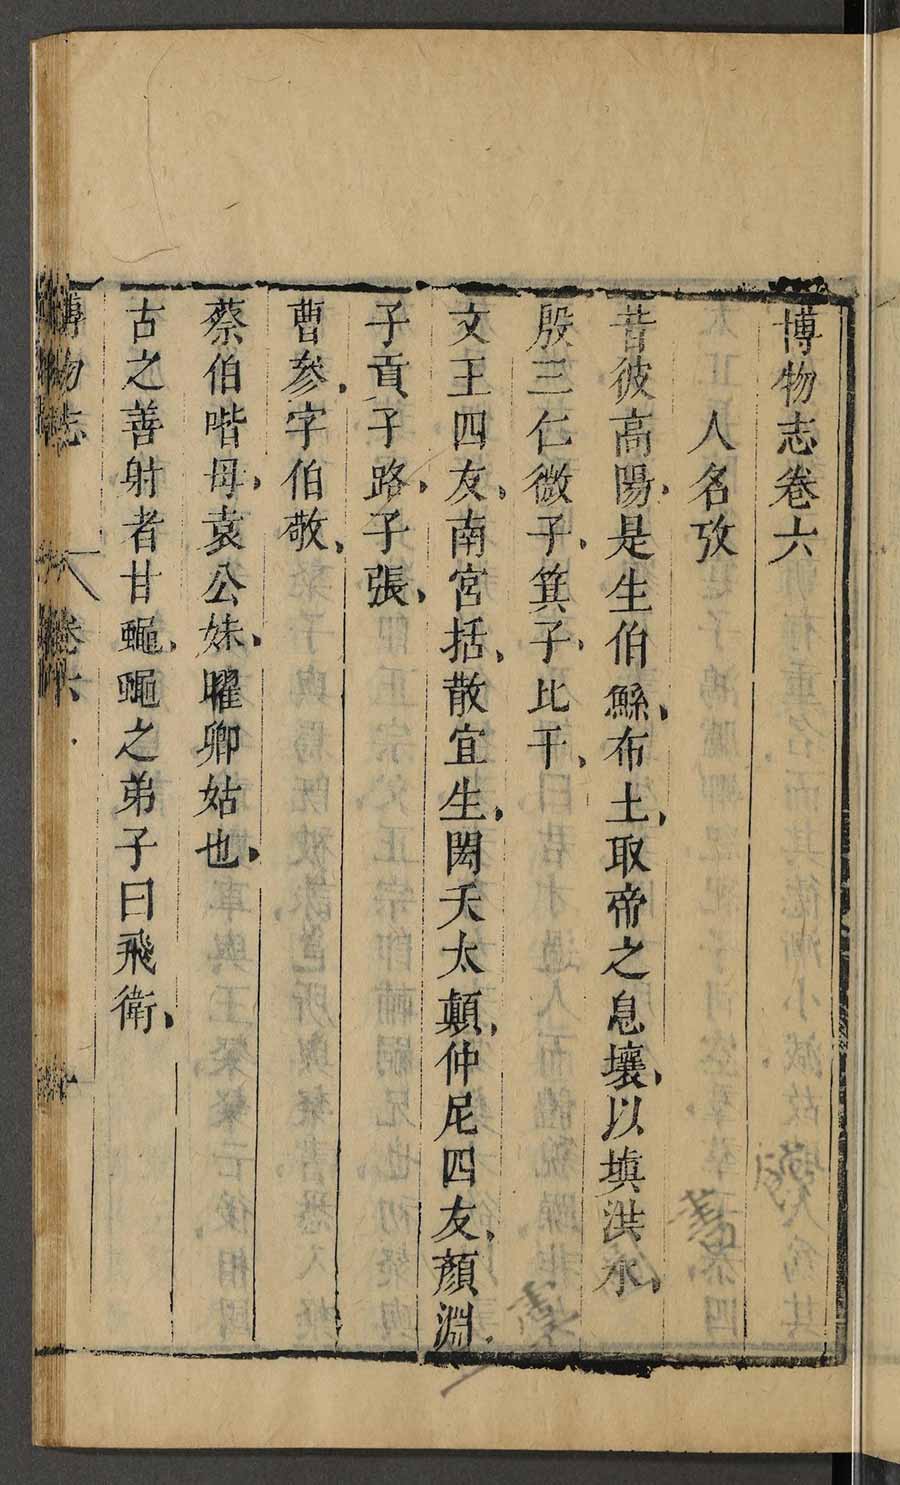 博物志卷六
人名攷
昔彼高陽是生伯鯀布土取帝之息壤以填洪水
殷三仁微子箕子比干
文王四友南宮括散宜生閎夭太顛仲尼四友顏淵
子貢子路子張
曹參字伯敬
蔡伯喈母袁公妹曜卿姑也
古之善射者甘蠅蠅之弟子曰飛衛
博物志 卷六